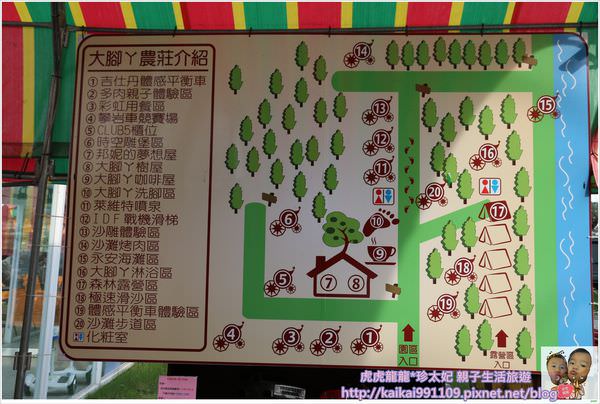 大腳丫農莊介紹
①吉仕丹體感平衡車
②多肉親子體驗區
③彩虹用餐區
④攀岩車競賽場
⑤CLUB5櫃位
⑥時空雕堡區
⑦邦妮的夢想屋
⑧大腳丫樹屋
⑨大腳丫咖啡屋
⑩大腳丫洗腳區
⑪萊維特噴泉
⑫IDF戰機滑梯
⑬沙雕體驗區
⑭沙灘烤肉區
⑮永安海灘區
⑯大腳丫淋浴區
⑰森林露營區
⑱極速滑沙區
⑲體感平衡車體驗區
⑳沙灘步道區
化粧室
⑭
⑮
⑬
⑫
⑪
⑯
⑳
⑰
⑥
⑩
⑨
⑤
⑦
⑧
⑱
⑲
④
③
②
①
園區
入口
露營區
入口
虎虎龍龍*珍太妃 親子生活旅遊
http://kaikai991109.pixnet.net/blog